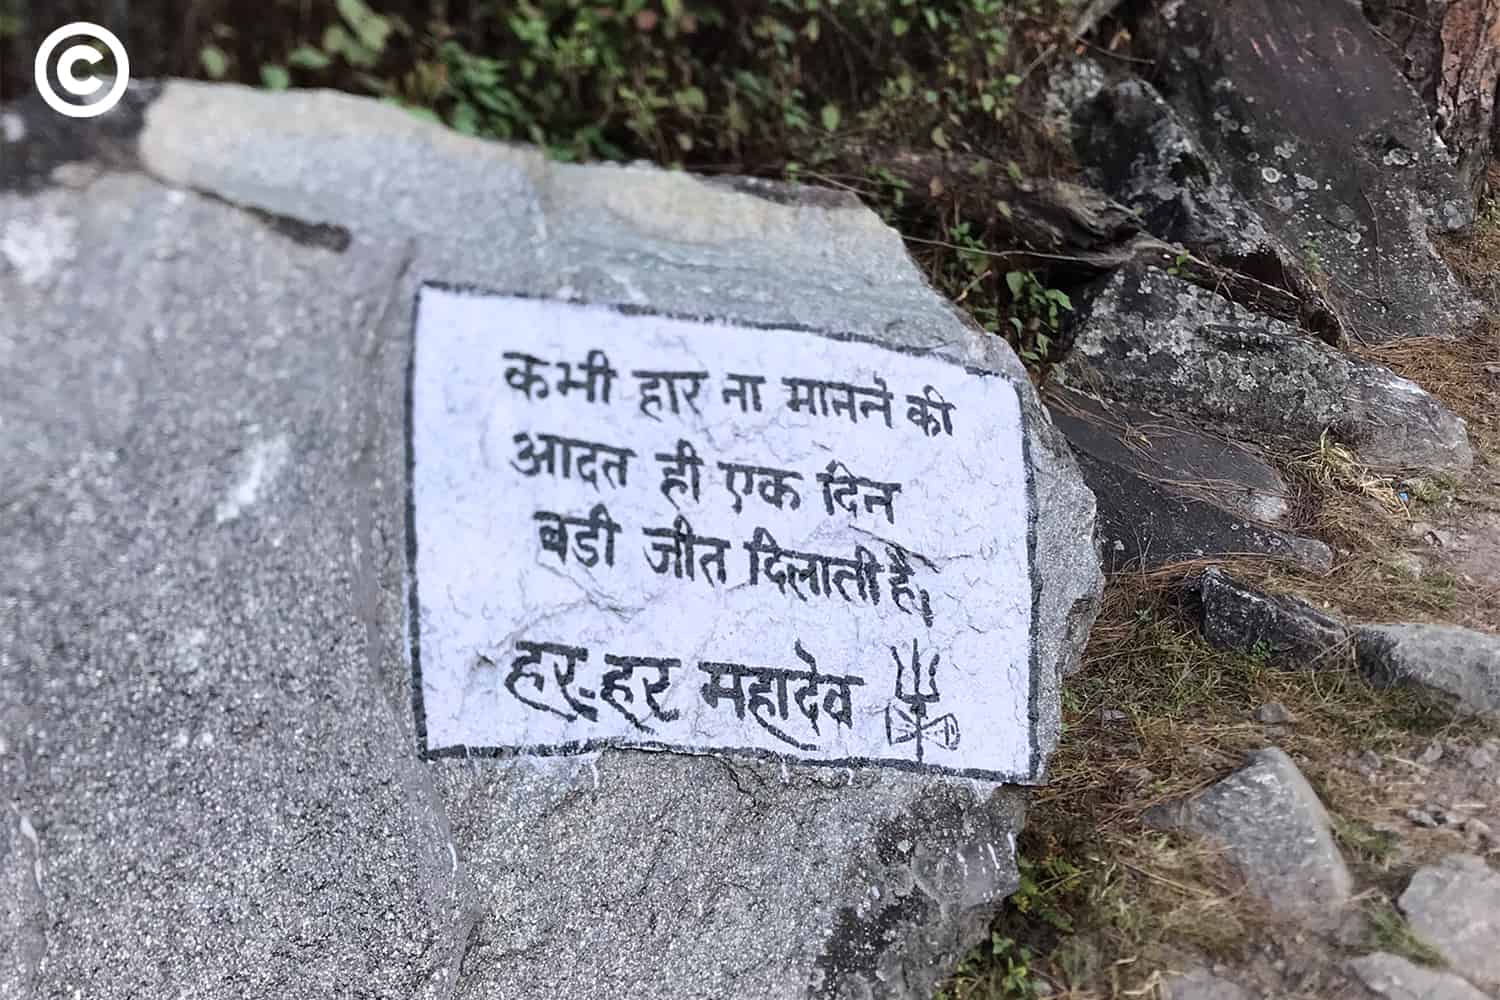 ©
कभी हार ना मानने की
आदत ही एक दिन
बडी जीत दिलाती है।
हर-हर महादेव